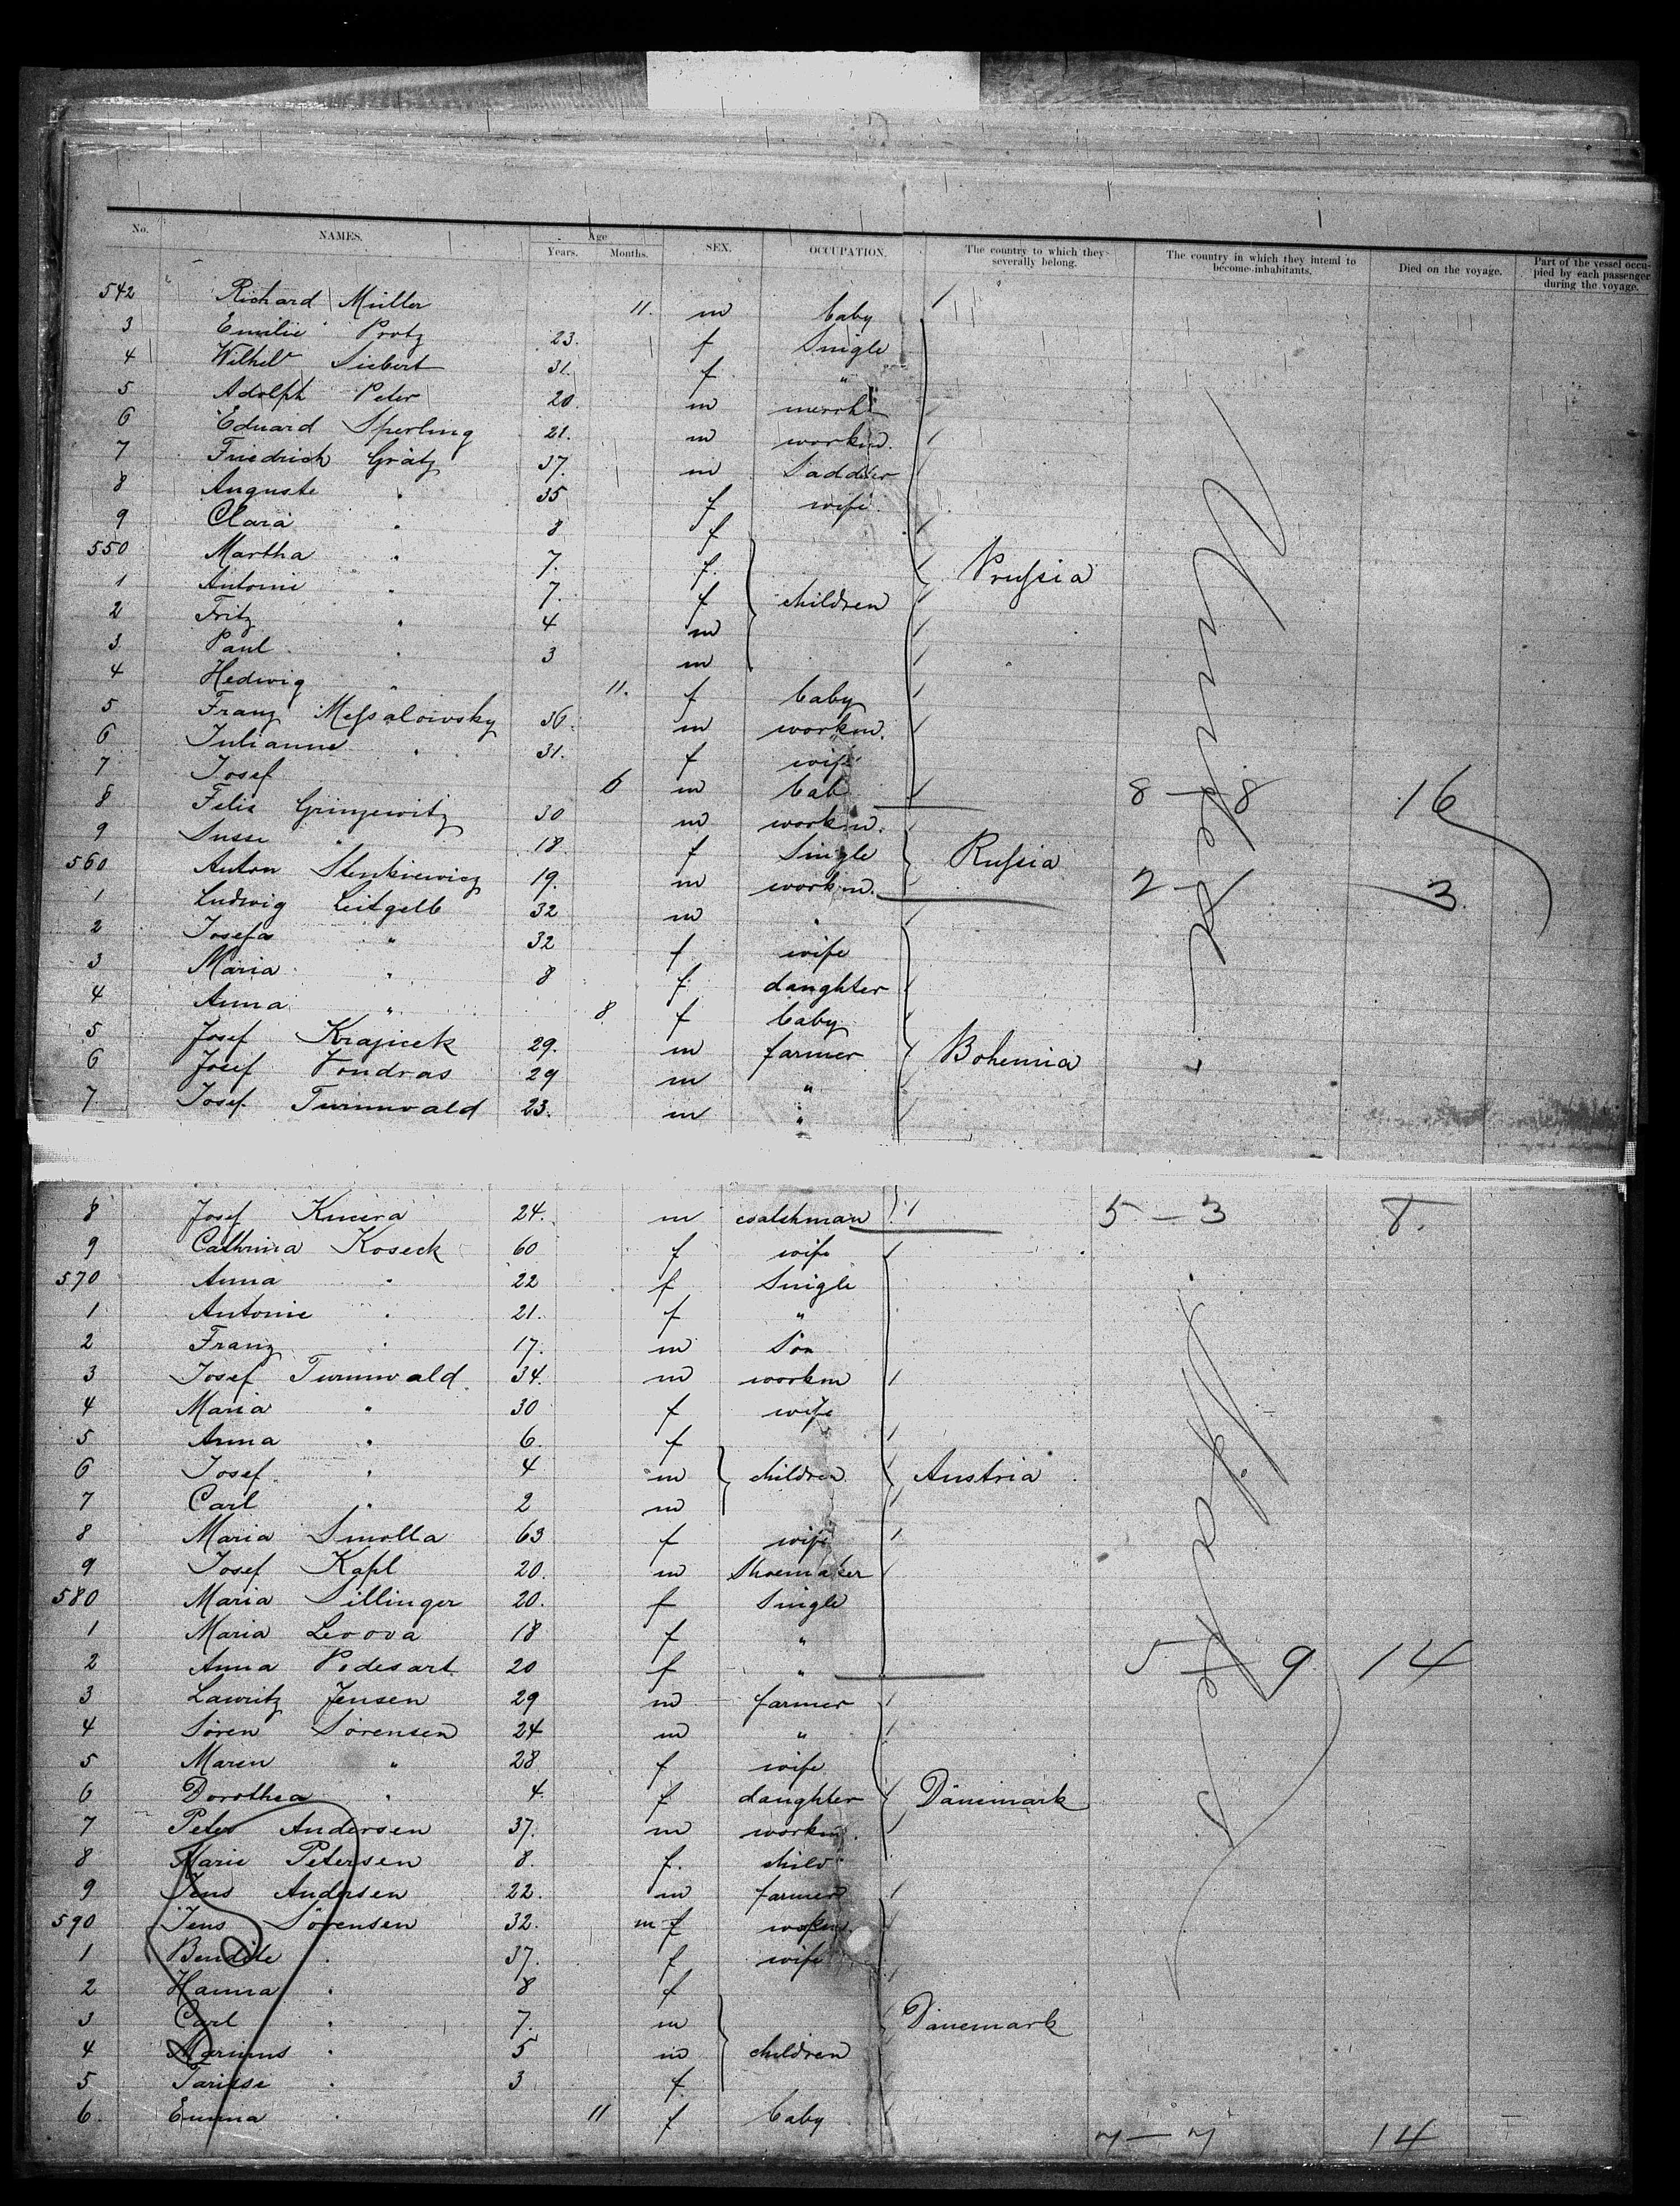 No. NAMES. Age Years. Months. SEX. OCCUPATION. The country to which they severally belong. The country in which they intend to become inhabitants. Died on the voyage. Part of the vessel occupied by each passenger during the voyage.
542 Richard Müller 11. m baby
3 Emilie Protz 23. f Single
4 Wilhel Siebert 31. f "
5 Adolph Peter 20. m
6 Eduard Sperling 21. m workm.
7 Friedrich Grätz 37. m Saddler
8 Auguste " 35 f wife
9 Clara " 8 f
550 Martha " 7. f. Prussia
1 Antonie " 7. f children
2 Fritz " 4 m
3 Paul " 3 m
4 Hedwig " 11. f baby
5 Franz Messalowsky 36. m workm.
6 Julianne " 31. f wife
7 Josef 6 m bab 8 — 8 16
8 Felix Grinzewitz 30 m workm.
9 Susse " 18. f Single Russia
560 Anton Stenkiewicz 19. m workm. 2 — 1 3.
1 Ludwig Leitgelb 32 m "
2 Josefa " 32 f wife
3 Maria " 8 f. daughter
4 Anna " 8. f baby
5 Josef Krajicek 29. m farmer Bohemia
6 Josef Vondras 29 m "
7. Josef Turnwald 23. m "
8 Josef Kucera 24. m coatchman 5 — 3 8.
9 Cathrina Koseck 60 f wife
570 Anna " 22 f Single
1 Antonie " 21. f "
2 Franz " 17. m Son
3 Josef Turnwald 34. m workm
4 Maria " 30 f wife
5 Anna " 6. f
6 Josef " 4 m children Austria
7 Carl " 2 m
8 Maria Smolla 63 f wife
9 Josef Kapl 20. m Shoemaker
580 Maria Sillinger 20. f Single
1 Maria 18 f "
2 Anna Podesart 20 f " 5 — 9 14
3 Lawritz Jensen 29 m farmer
4 Sören Sörensen 24 m "
5 Maren " 28 f wife
6 Dorothea " 4. f daughter Dänemark
7 Peter Andersen 37. m workm.
8 Marie Petersen 8. f. child
9 Jens Andersen 22. m farmer
590 Jens Sörensen 32. m f workm.
1 Bendite " 37. f wife
2 Hanna " 8 f
3 Carl " 7. m Dänemark
4 Marinus " 5 m children
5 " 3 f.
6. Emma " 11 f baby 7 — 7 14